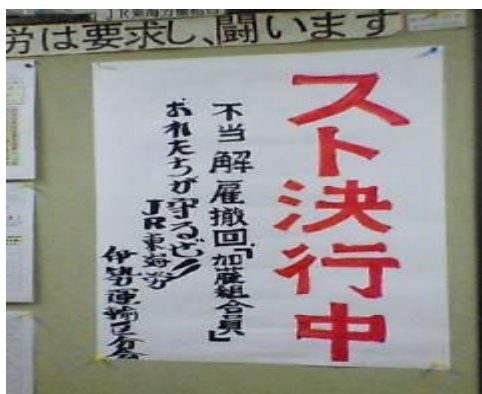 JR東海労
労は要求し、闘います
スト決行中
不当解雇撤回「加藤組合員」
おれたちが守るぞ!!
JR東海労
伊勢運輸区分会